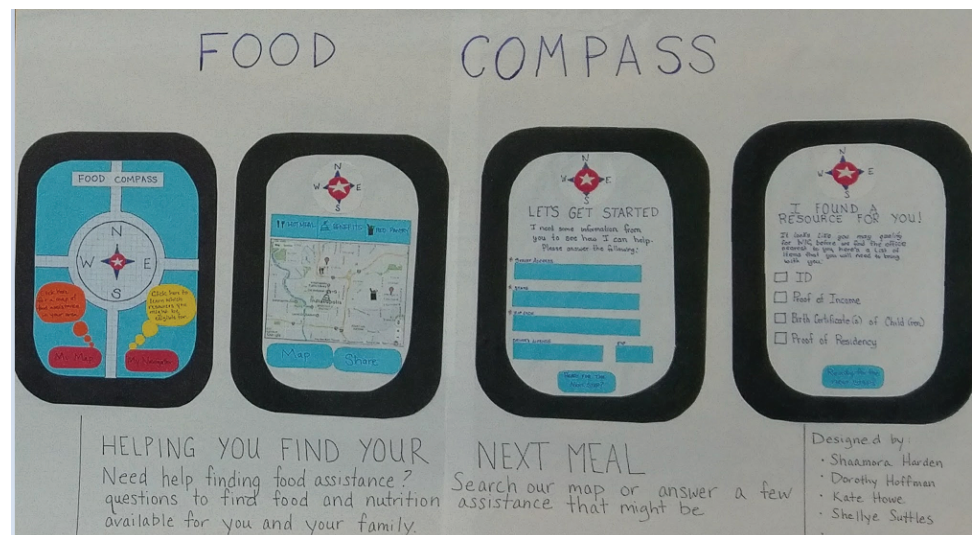 FOOD COMPASS
FOOD COMPASS
N
W E
S
Click here
My Map
Click here to
learn which
resources you
might be
eligible for.
My Resources
N
W E
S
Map
Share
N
W E
S
LET'S GET STARTED
I need some information from
you to see how I can help.
Please answer the following:
N
W E
S
I FOUND A
RESOURCE FOR YOU!
It looks like you may qualify
for WIC before we find the office
nearest to you, here's a list of
items that you will need to bring
with you:
ID
Proof of Income
Birth Certificate(s) of Child(ren)
Proof of Residency
Ready for the
next step?
HELPING YOU FIND YOUR NEXT MEAL
Need help finding food assistance? Search our map or answer a few
questions to find food and nutrition assistance that might be
available for you and your family.
Designed by:
• Shaamora Harden
• Dorothy Hoffman
• Kate Howe
• Shellye Suttles